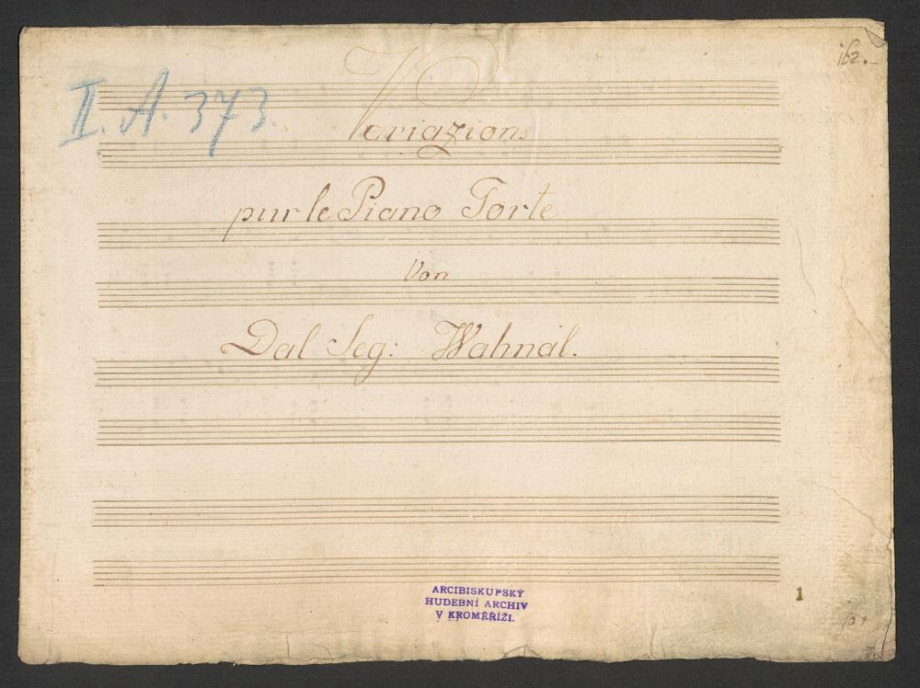 162.
II. A. 373.
Variazion
pur le Piano Forte
Von
Dal Seg: Wahnal.
ARCIBISKUPSKÝ
HUDEBNÍ ARCHIV
V KROMĚŘÍŽI.
1